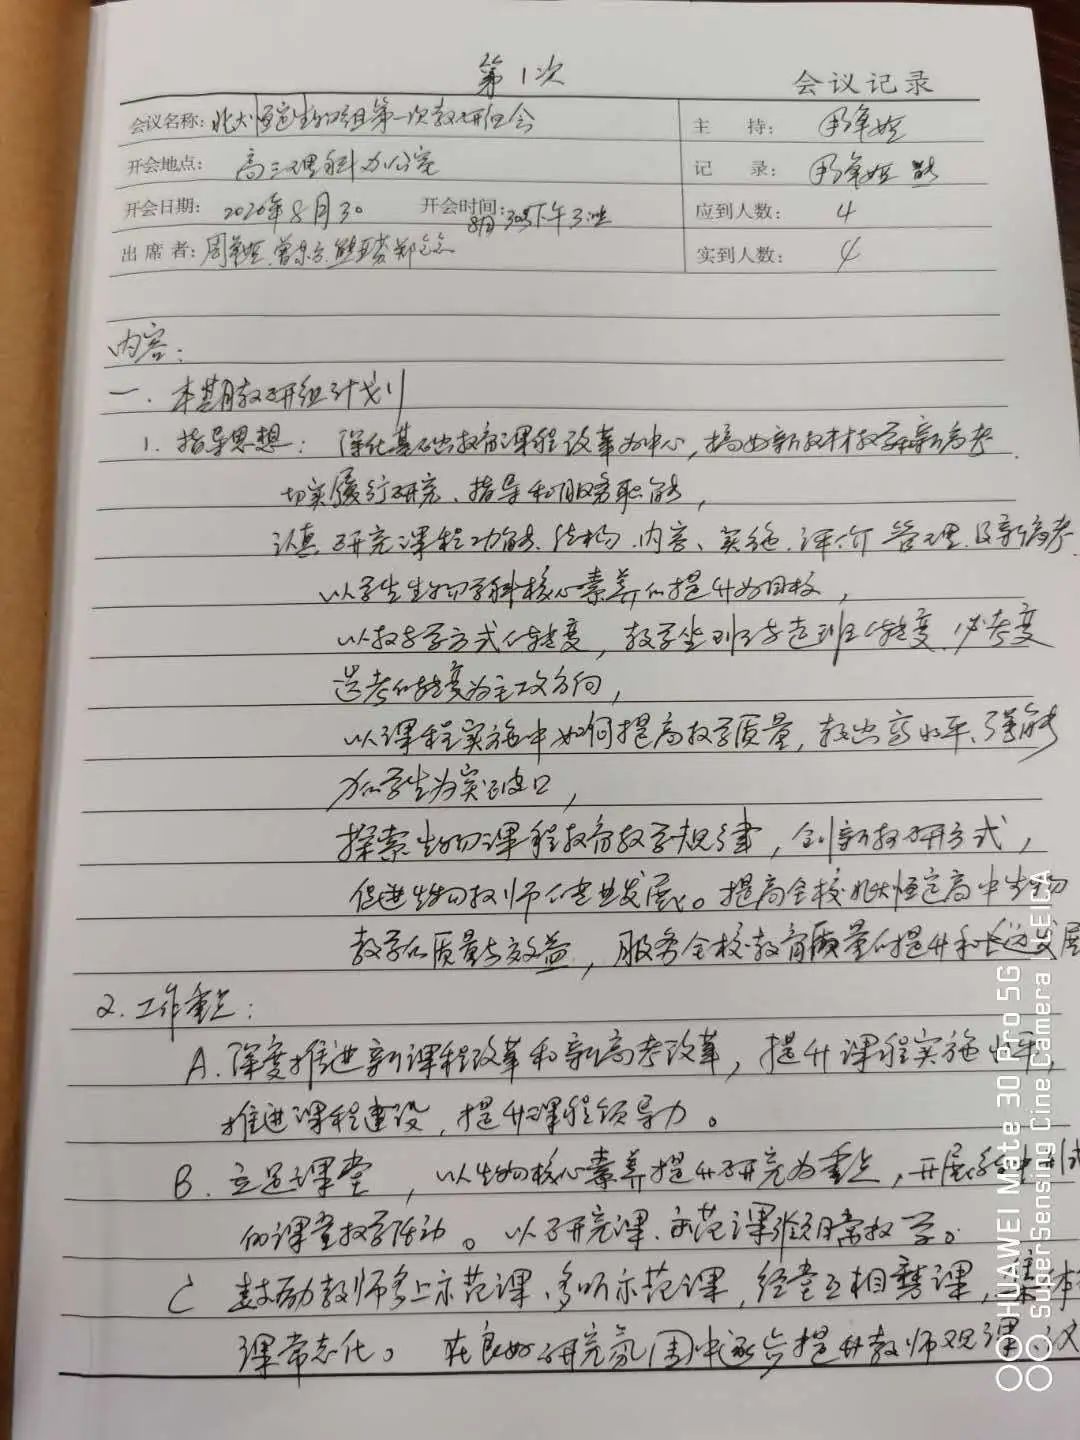 第1次
会议记录
会议名称: 北大恒定生物组第一次教研组会
主 持:
开会地点: 高三理科办公室
记 录:
开会日期: 2020年8月30 开会时间: 8月30号下午3:
应到人数: 4
出席者:
实到人数: 4
内容:
一. 本期教研组计划
1. 指导思想: 深化基础教育课程改革为中心, 搞好新教材教学和新高考.
切实履行研究、指导和服务职能,
认真研究课程功能、结构、内容、实施、评价 管理、及新高考.
以学生生物学科核心素养的提升为目标,
以教与学方式的转变, 教学坐班与走班的转变、必考变
选考的转变为主攻方向,
以课程实施中如何提高教学质量, 教出高水平、强能
力的学生为突破口,
探索生物课程教育教学规律, 创新教研方式,
促进生物教师的专业发展。提高全校北大恒定高中生物
教学的质量与效益, 服务全校教育质量的提升和长远发展
2. 工作重点:
A. 深度推进新课程改革和新高考改革, 提升课程实施水平,
推进课程建设, 提升课程领导力。
B. 立足课堂, 以生物核心素养提升研究为重点, 开展
的课堂教学活动。以研究课、示范课引领日常教学。
C 鼓励教师多上示范课、多听示范课, 经常互相磨课, 集体
课常态化。在良好研究氛围中逐步提升教师观课、议
HUAWEI Mate 30 Pro 5G
SuperSensing Cine Camera | SEIDA